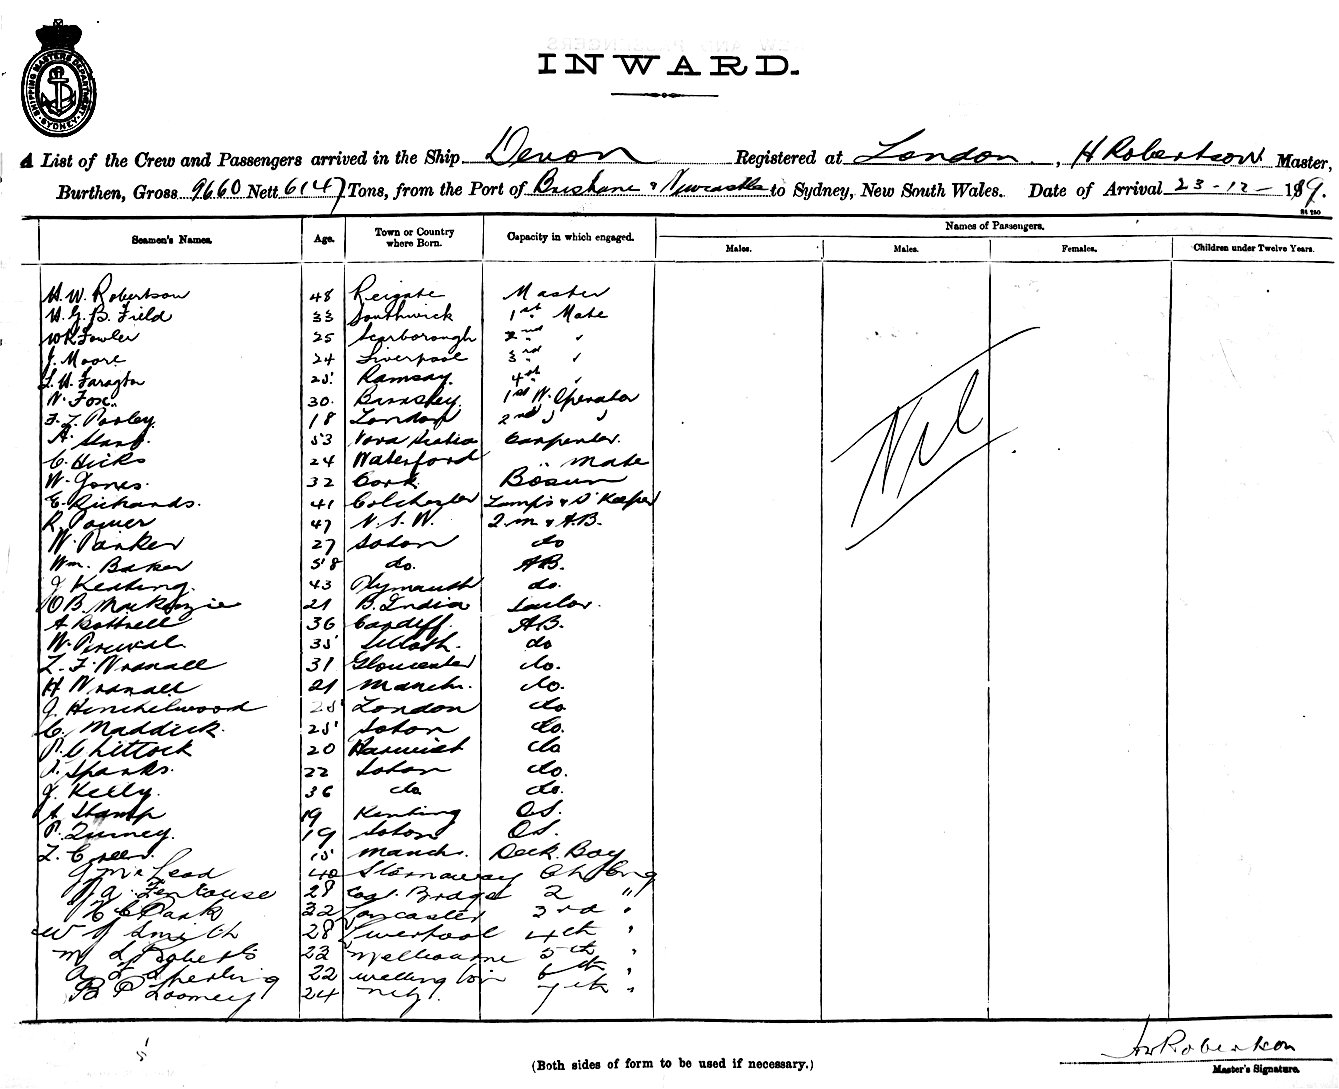 SHIPPING MASTER'S DEPARTMENT SYDNEY
INWARD.
A List of the Crew and Passengers arrived in the Ship Devon Registered at London, H Robertson Master,
Burthen, Gross 9660 Nett 6147 Tons, from the Port of Brisbane & Newcastle to Sydney, New South Wales. Date of Arrival 23-12- 19.
Seamen's Names. Age. Town or Country where Born. Capacity in which engaged. Names of Passengers.
Males. Males. Females. Children under Twelve Years.
H. W. Robertson 48 Reigate Master
H. G. B. Field 33 Southwick 1st Mate
W R Fowler 25 Scarborough 2nd "
J. Moore 24 Liverpool 3rd "
25 Ramsay. 4th "
N. Fox. 30 Barnsley. 1st W. Operator
18 London 2nd " "
A. 53 Nova Scotia Carpenter.
C. Hicks 24 Waterford " Mate
W. Jones. 32 Cork Bosun
E. Rickards. 41 Colchester Lamps & S' Keeper
R. Power 47 N. S. W. 2 m & A.B.
W. Parker 27 Soton do
Wm. Baker 58 do. AB.
J Keating. 43 Plymouth do.
O B. MacKenzie 21 B. India Sailor.
A Bottrell 36 Cardiff. AB.
W. Percival 35 do
L. F. Wranall 31 Gloucester do.
H Wranall 21 Manch. do.
J. Hinchelwood 25 London do
C. Maddick. 25 Soton do.
P. Chittock 20 Harwich do
Sparks. 22 Soton do.
J. Kelly. 36 do do.
A Stamp 19 Kentung OS.
P. Quiney. 19 Soton OS.
L. Green. 15 Manch. Deck Boy
McLead 40 Stornaway Ch Eng
28 Bridge 2 "
H C Park 32 Lancaster 3rd "
W J Smith 28 Liverpool 4th "
M L Roberts 23 Melbourne 5th "
A L Sperling 22 Wellington 6th "
B P Loomey 24 N.Z. 7th "
Nil
H W Robertson
(Both sides of form to be used if necessary.)
Master's Signature.